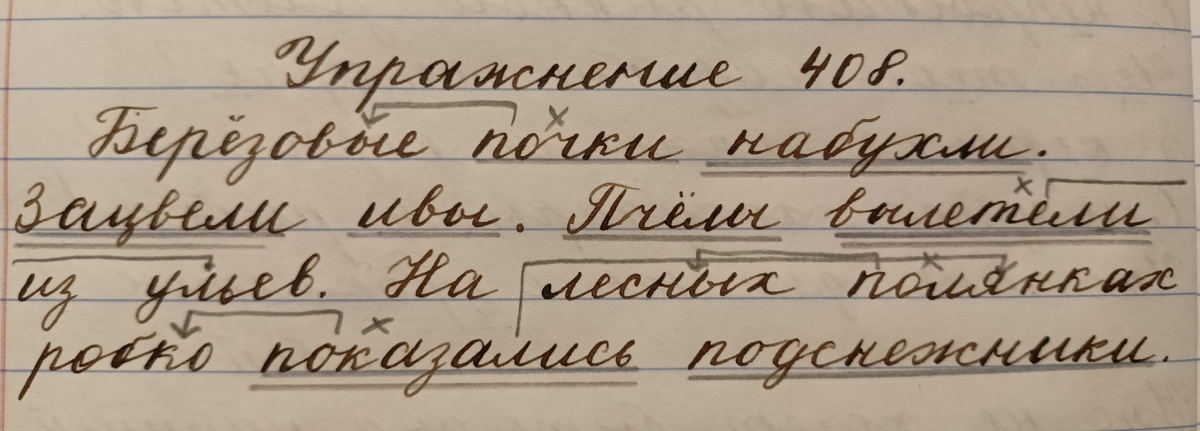 Упражнение 408.
Берёзовые почки набухли.
Зацвели ивы. Пчёлы вылетели
из ульев. На лесных полянках
робко показались подснежники.